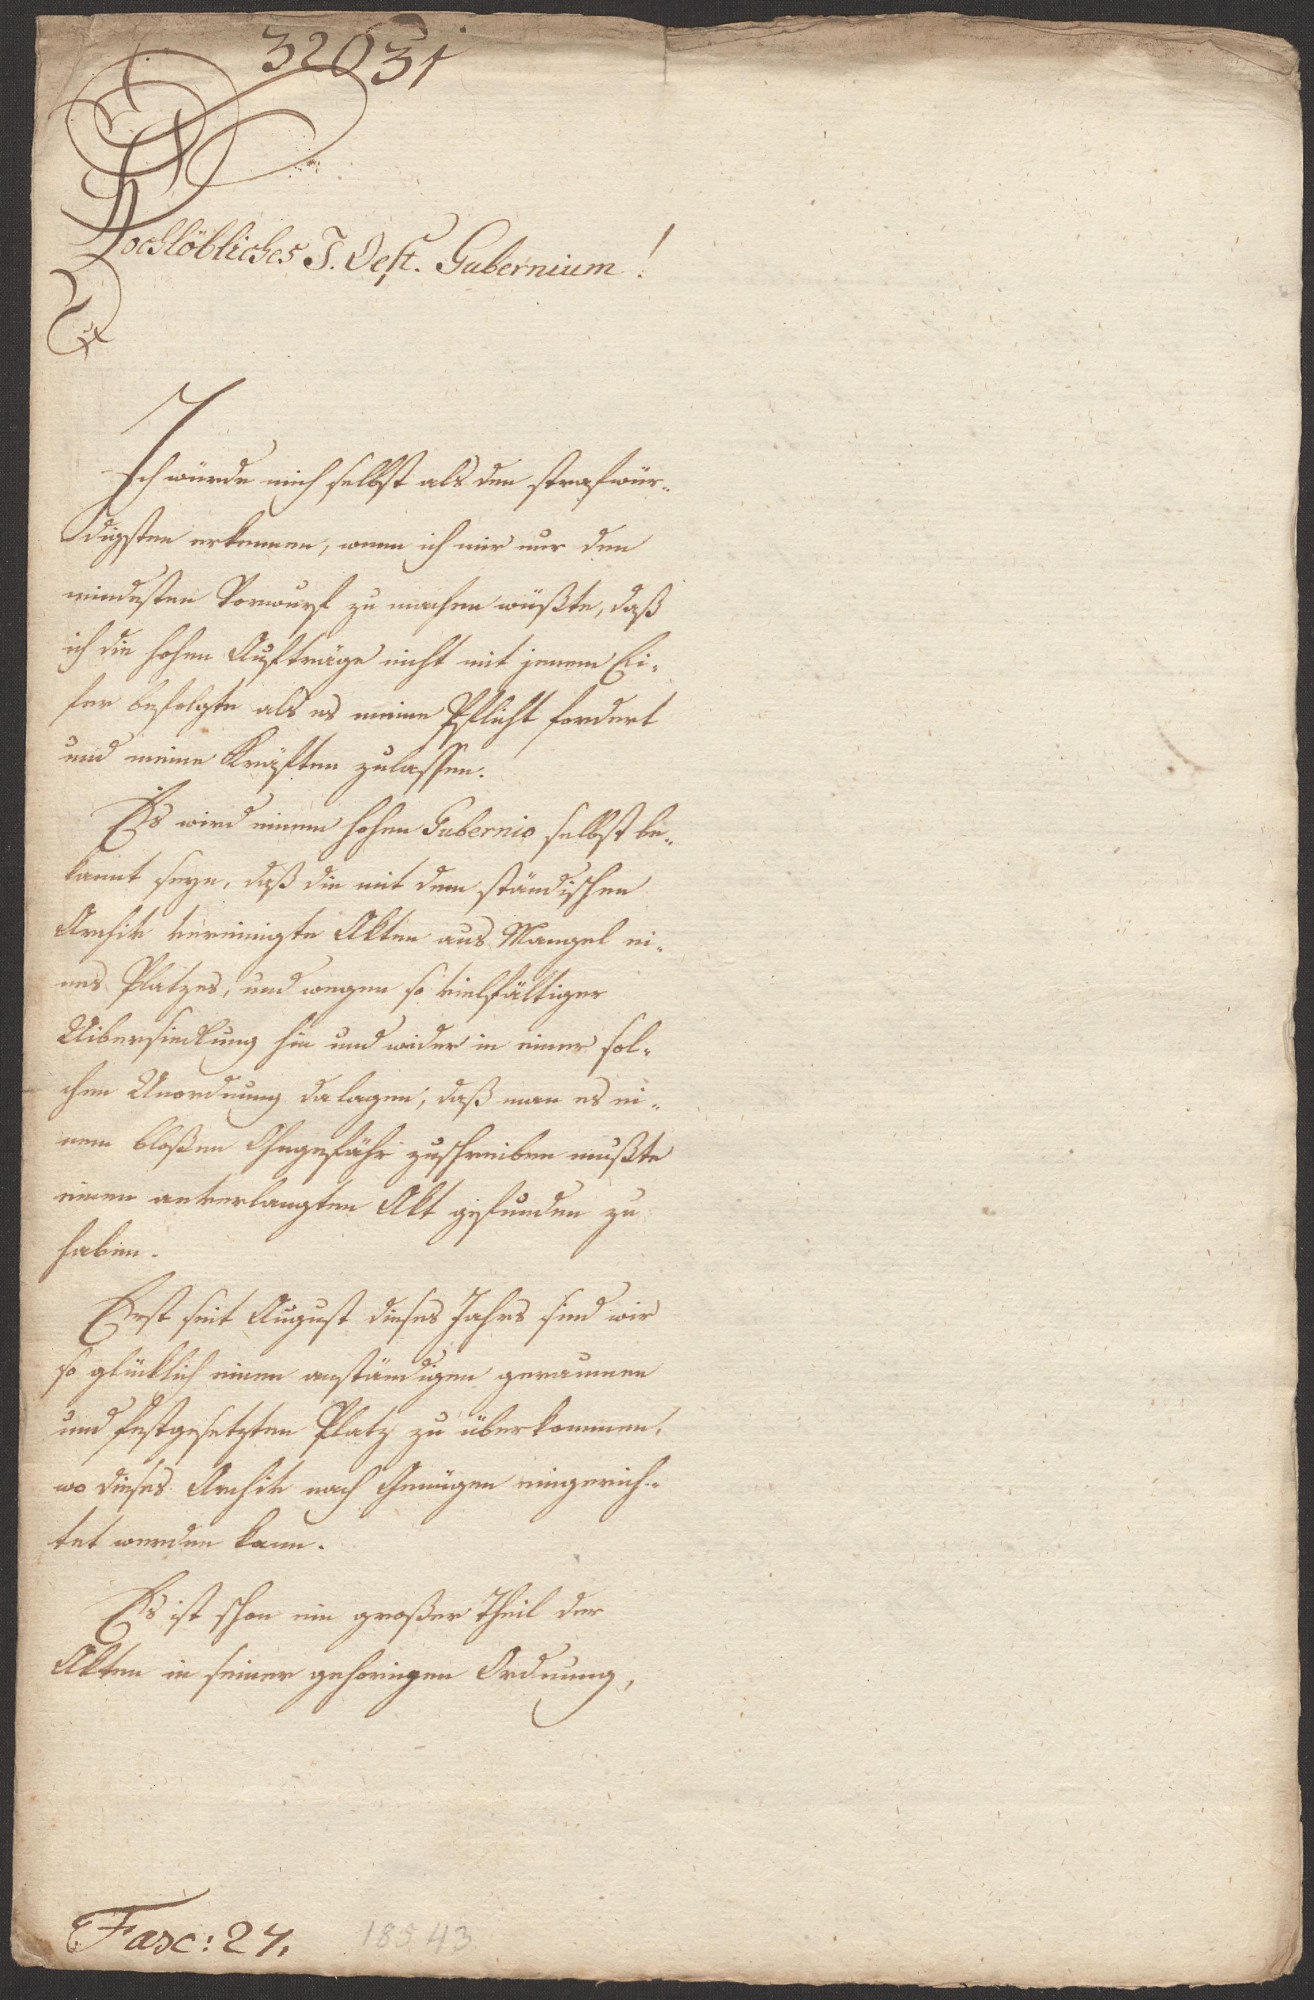 32031
Hochlöbliches I. Oest. Gubernium!
Ich würde mich selbst als den strafwür-
digsten erkennen, wenn ich mir nur den
mindesten Vorwurf zu machen wüßte, daß
ich die hohen Aufträge nicht mit jenem Ei-
fer befolgte als es meine Pflicht fordert
und meine Kräften zulassen.
Es wird einem hohen Gubernio selbst be-
kannt seyn, daß die mit dem ständischen
Archiv vereinigte Akten aus Mangel ei-
nes Platzes, und wegen so vielfältiger
Uibersiedlung hin und wider in einer sol-
chen Unordnung dalagen, daß man es ei-
nem bloßen Ohngefähr zuschreiben mußte
einen anverlangten Akt gefunden zu
haben.
Erst seit August dieses Jahrs sind wir
so glücklich einen anständigen geraumen
und festgesetzten Platz zu überkommen,
wo dieses Archiv nach Genügen eingerich-
tet werden kann.
Es ist schon ein großer Theil der
Akten in seiner gehörigen Ordnung,
Fasc: 27.
18543